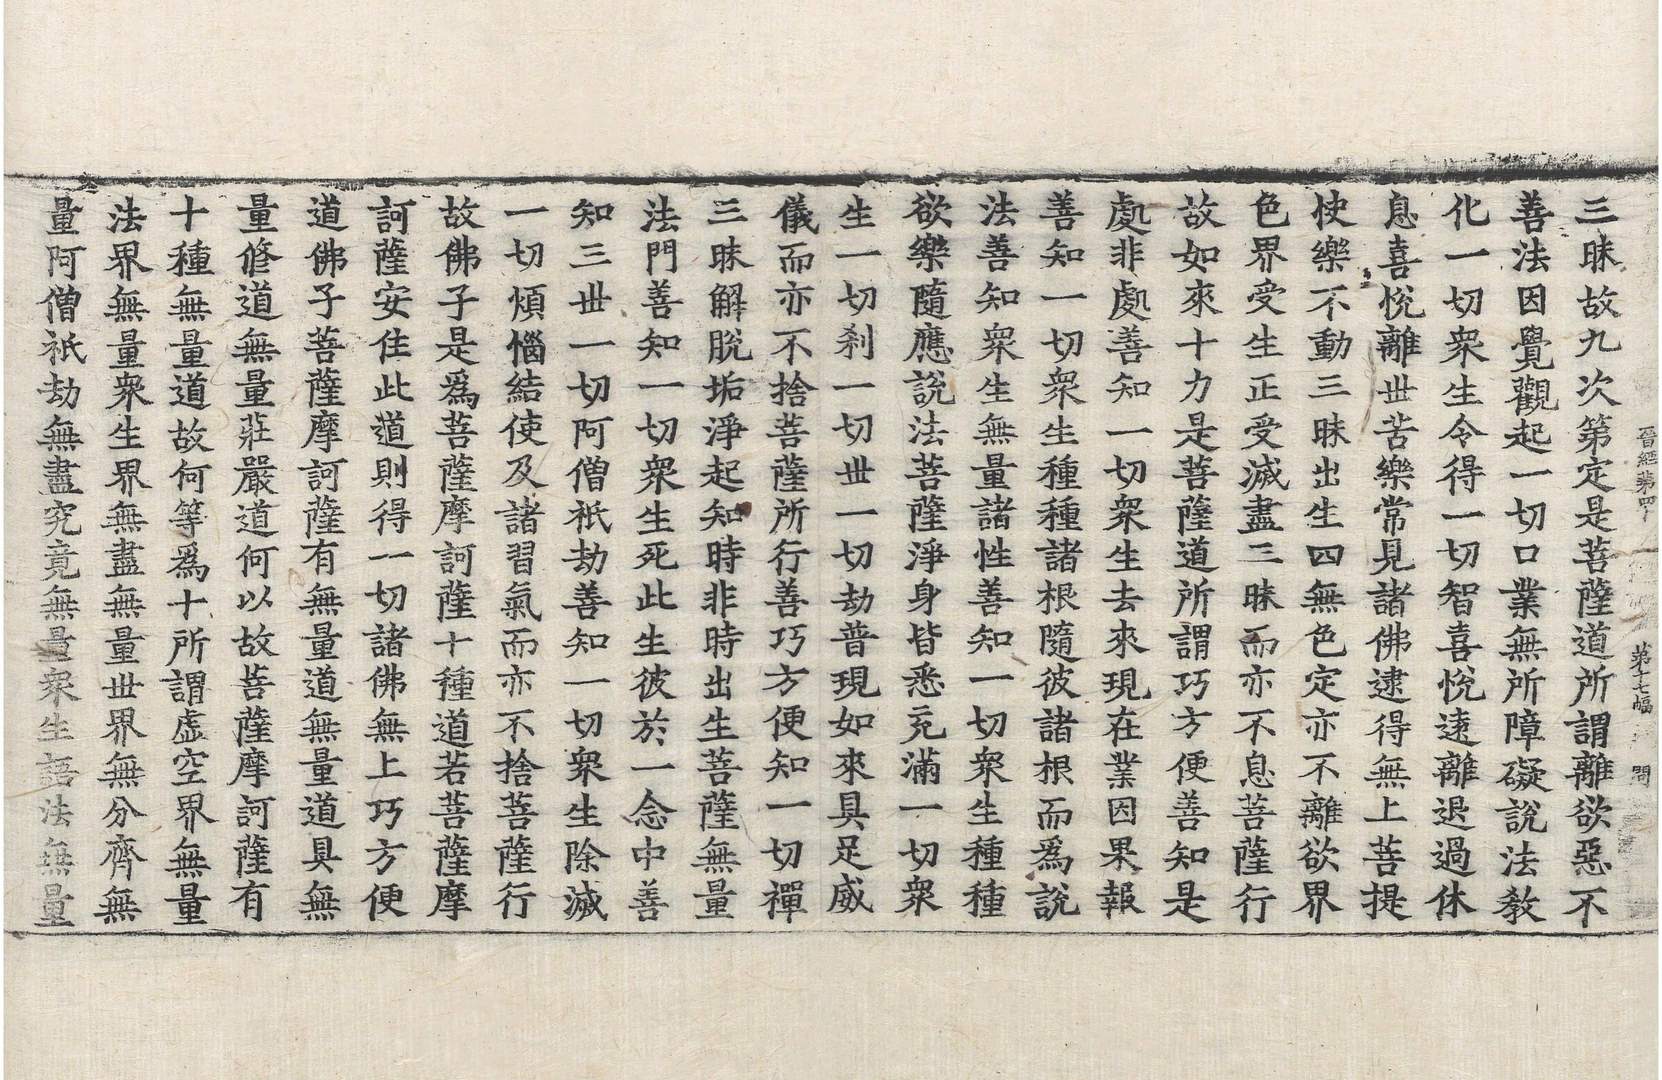 晉經第四十
第十七幅
問
三昧故九次第定是菩薩道所謂離欲惡不
善法因覺觀起一切口業無所障礙說法教
化一切衆生令得一切智喜悅遠離退過休
息喜悅離世苦樂常見諸佛逮得無上菩提
使樂不動三昧出生四無色定亦不離欲界
色界受生正受滅盡三昧而亦不息菩薩行
故如來十力是菩薩道所謂巧方便善知是
處非處善知一切衆生去來現在業因果報
善知一切衆生種種諸根隨彼諸根而爲說
法善知衆生無量諸性善知一切衆生種種
欲樂隨應說法菩薩淨身皆悉充滿一切衆
生一切刹一切世一切劫普現如來具足威
儀而亦不捨菩薩所行善巧方便知一切禪
三昧解脫垢淨起知時非時出生菩薩無量
法門善知一切衆生死此生彼於一念中善
知三世一切阿僧祇劫善知一切衆生除滅
一切煩惱結使及諸習氣而亦不捨菩薩行
故佛子是爲菩薩摩訶薩十種道若菩薩摩
訶薩安住此道則得一切諸佛無上巧方便
道佛子菩薩摩訶薩有無量道無量道具無
量修道無量莊嚴道何以故菩薩摩訶薩有
十種無量道故何等爲十所謂虛空界無量
法界無量衆生界無盡無量世界無分齊無
量阿僧祇劫無盡究竟無量衆生語法無量